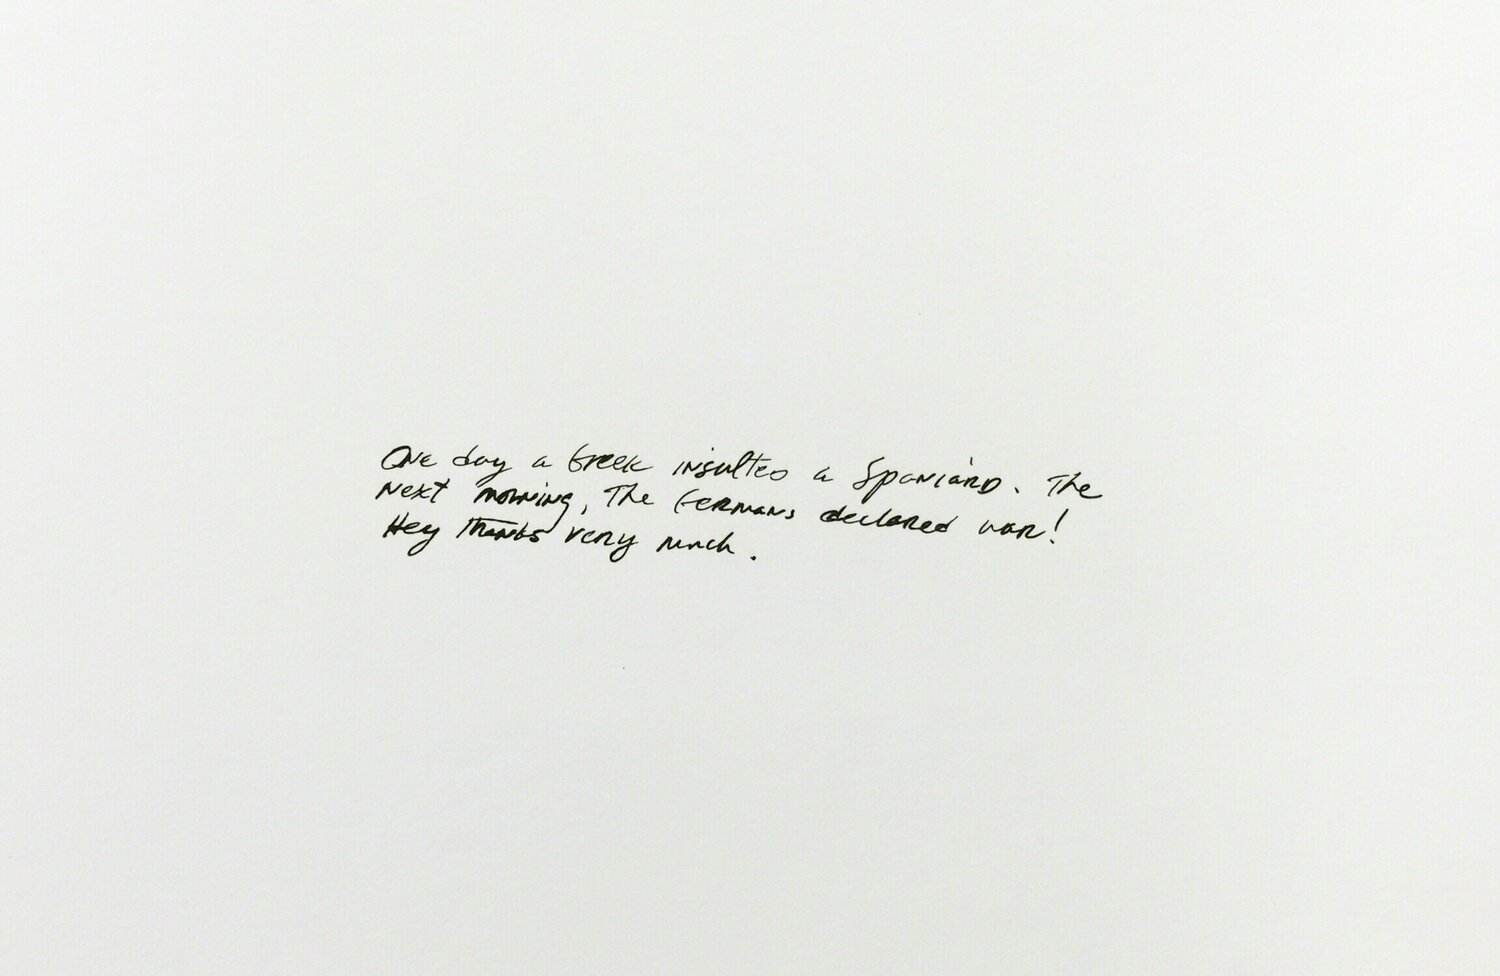 One day a Greek insulted a Spaniard. The
next morning, The Germans declared war!
Hey Thanks very much.